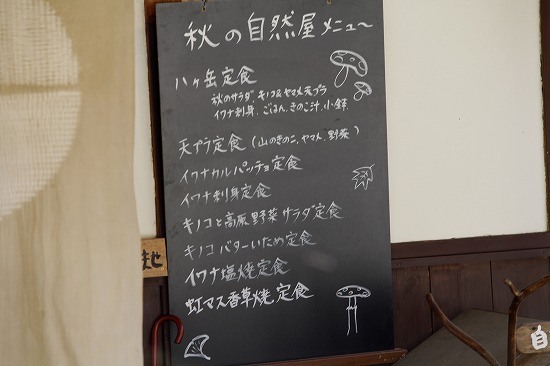 秋の自然屋メニュー
八ヶ岳定食
秋のサラダ、キノコ&ヤマメ天プラ
イワナ刺身、ごはん、きのこ汁、小鉢
天プラ定食(山のきのこ、ヤマメ、野菜)
イワナカルパッチョ定食
イワナ刺身定食
キノコと高原野菜サラダ定食
キノコバターいため定食
イワナ塩焼定食
虹マス香草焼定食
自